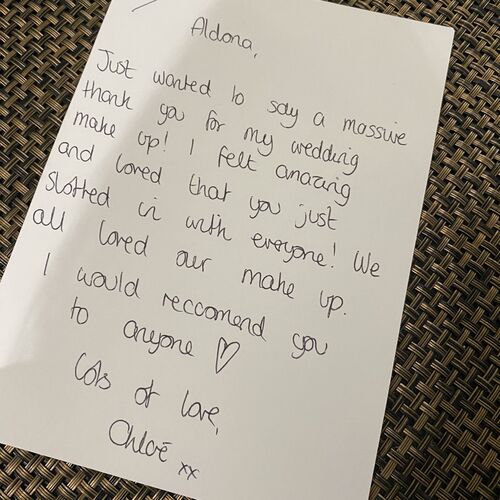 Aldona,
Just wanted to say a massive
thank you for my wedding
make up! I felt amazing
and loved that you just
slotted in with everyone! We
all loved our make up.
I would reccomend you
to anyone ♡
Lots of love,
Chloé xx